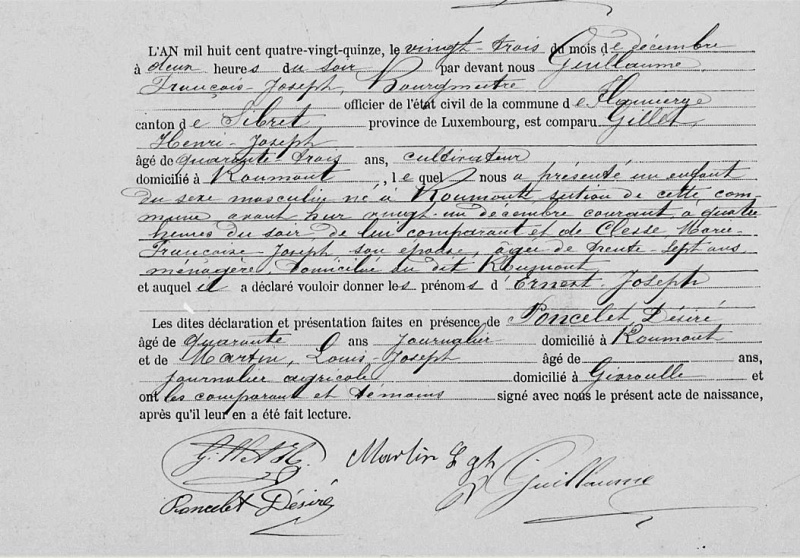 L'AN mil huit cent quatre-vingt-quinze, le vingt-trois du mois de décembre
à deux heures du soir par devant nous Guillaume,
François-Joseph, Bourgmestre
officier de l'état civil de la commune de Flamierge
canton de Sibret province de Luxembourg, est comparu Gillet,
Henri-Joseph
âgé de quarante trois ans, cultivateur
domicilié à Roumont, le quel nous a présenté un enfant
du sexe masculin né à Roumont section de cette com-
mune avant hier vingt-un décembre courant à quatre
heures du soir de lui comparant et de Clesse Marie-
Françoise-Joseph son épouse, âgée de trente-sept ans,
ménagère, domiciliée du dit Roumont
et auquel il a déclaré vouloir donner les prénoms d'Ernest Joseph
Les dites déclaration et présentation faites en présence de Poncelet Désiré
âgé de quarante ans journalier domicilié à Roumont
et de Martin, Louis-Joseph âgé de ans,
journalier agricole domicilié à Givroulle et
ont les comparant et témoins signé avec nous le présent acte de naissance,
après qu'il leur en a été fait lecture.
Martin L gh
Guillaume
Poncelet Désiré